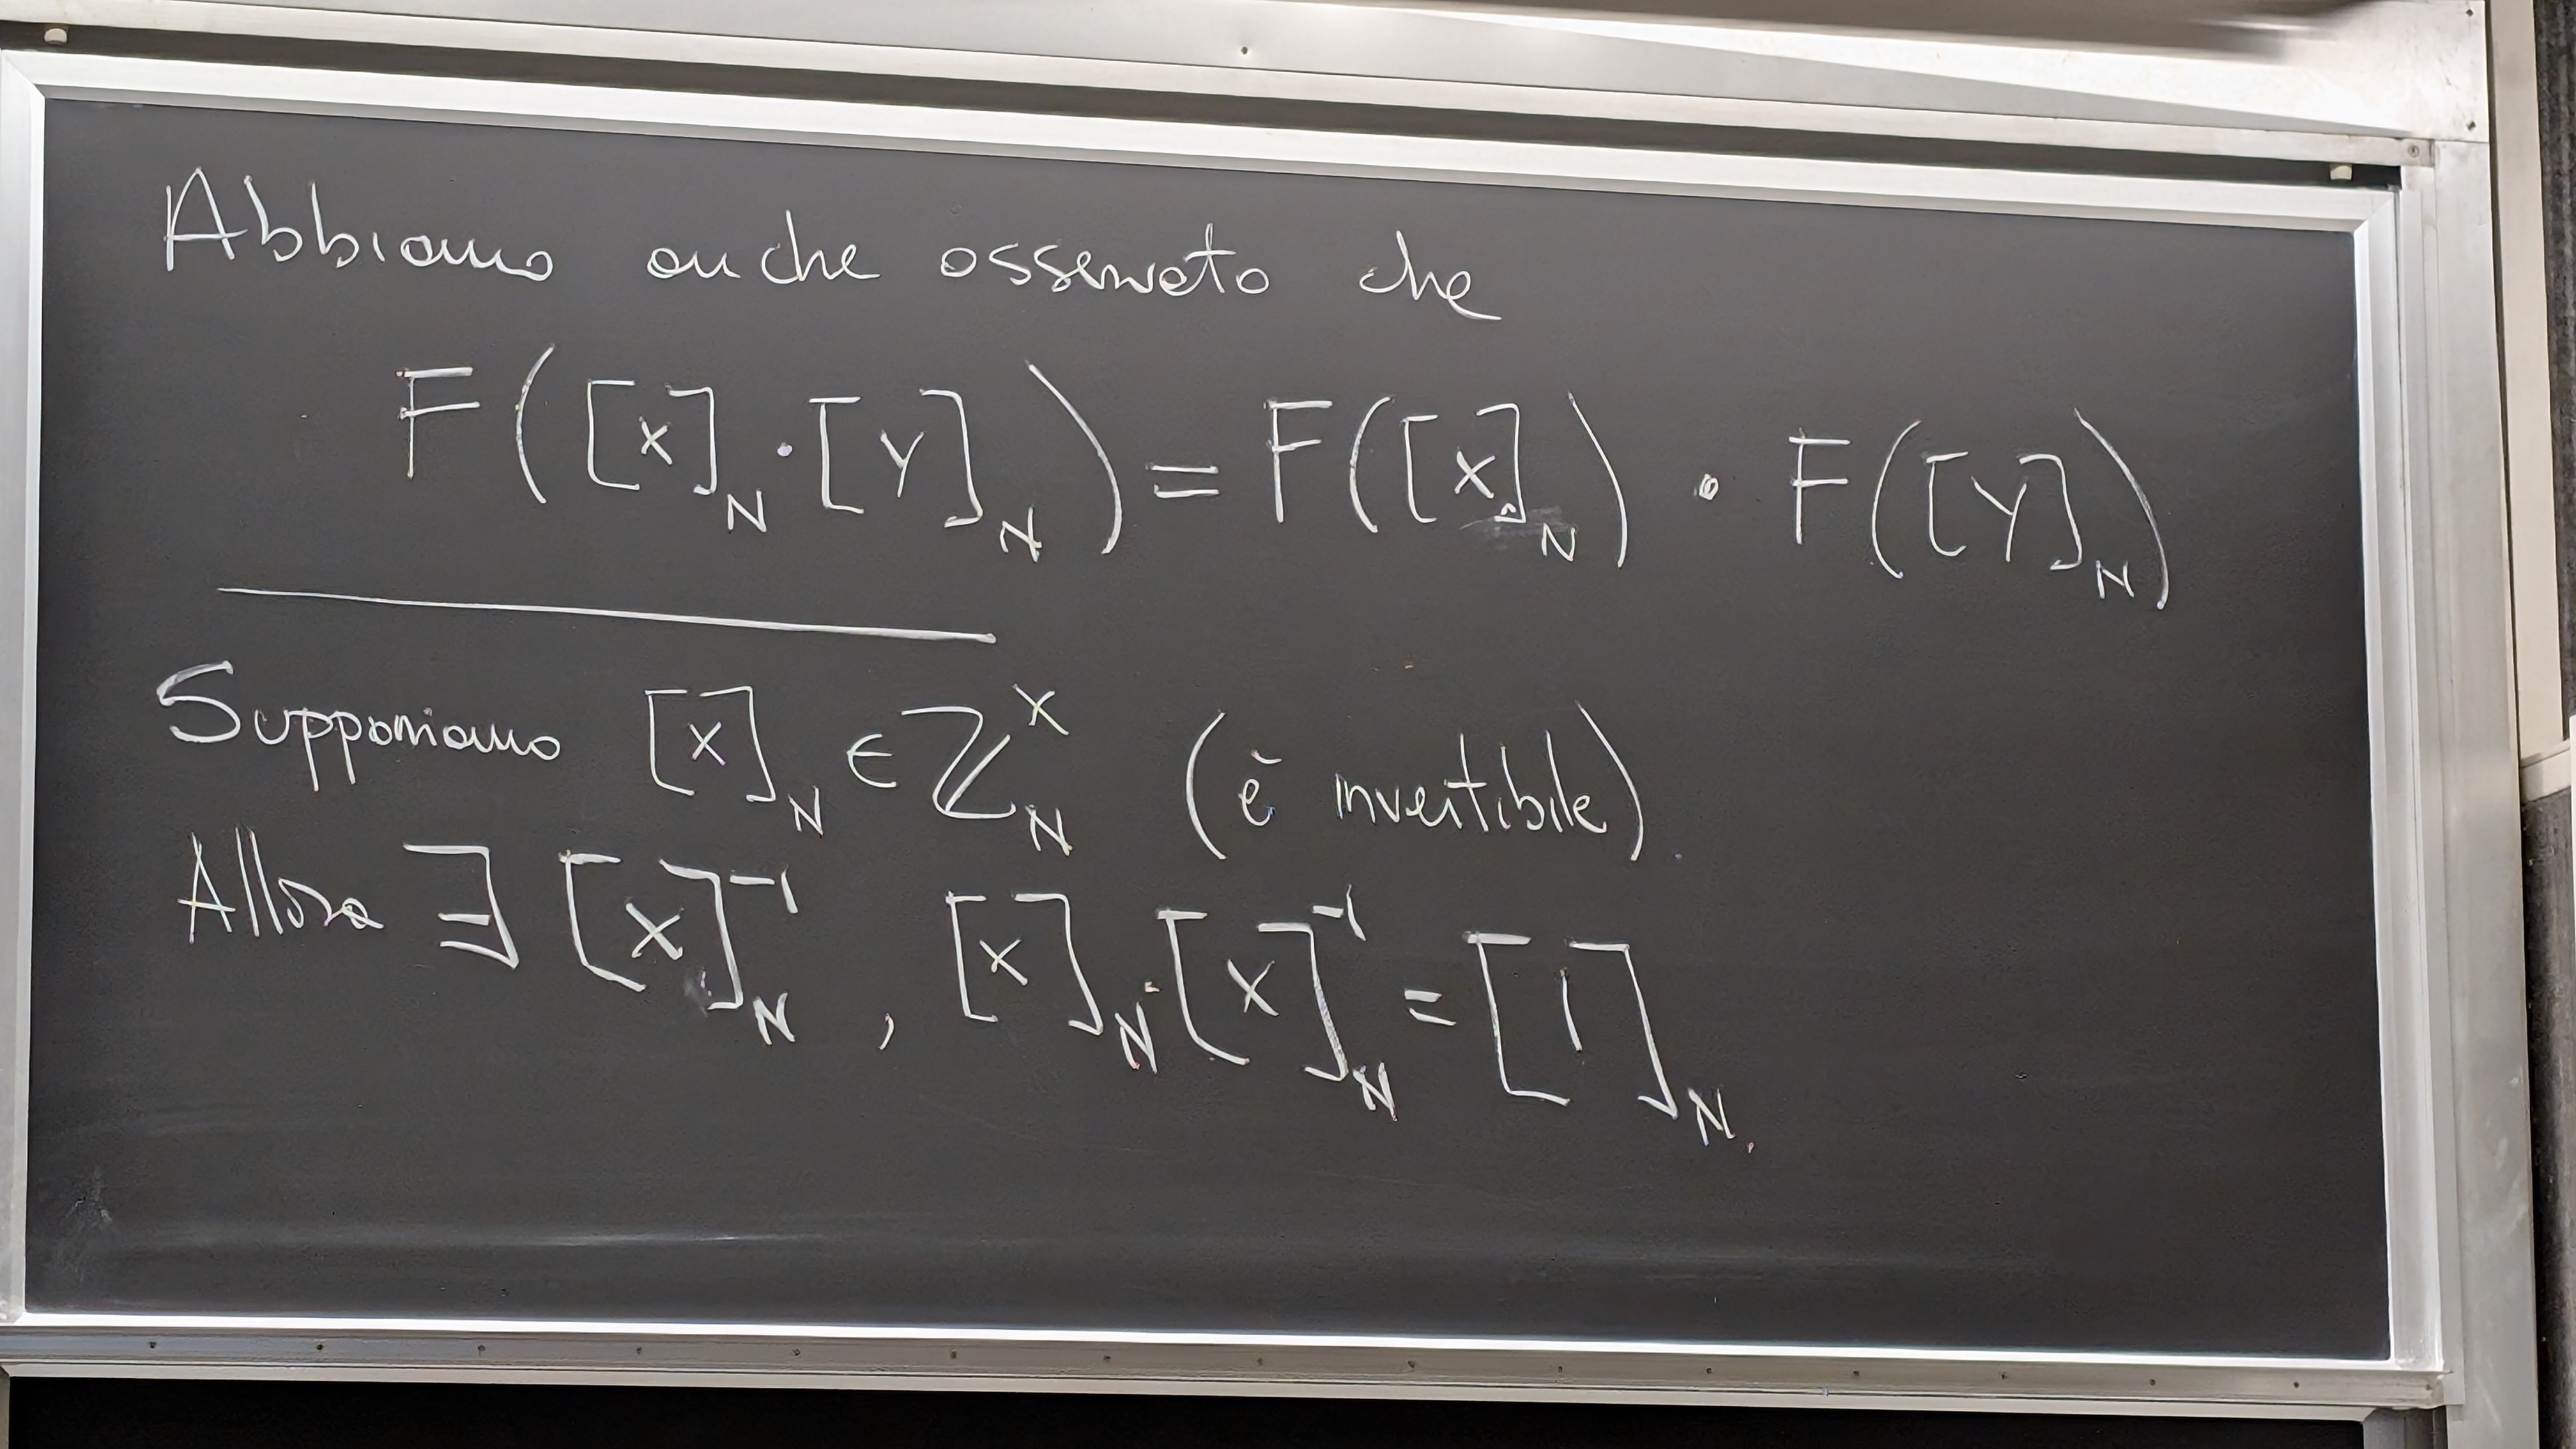 Abbiamo anche osservato che
F([x]_N · [y]_N) = F([x]_N) · F([y]_N)
Supponiamo [x]_N ∈ ℤ_N^× (è invertibile)
Allora ∃ [x]_N^{-1} , [x]_N · [x]_N^{-1} = [1]_N.